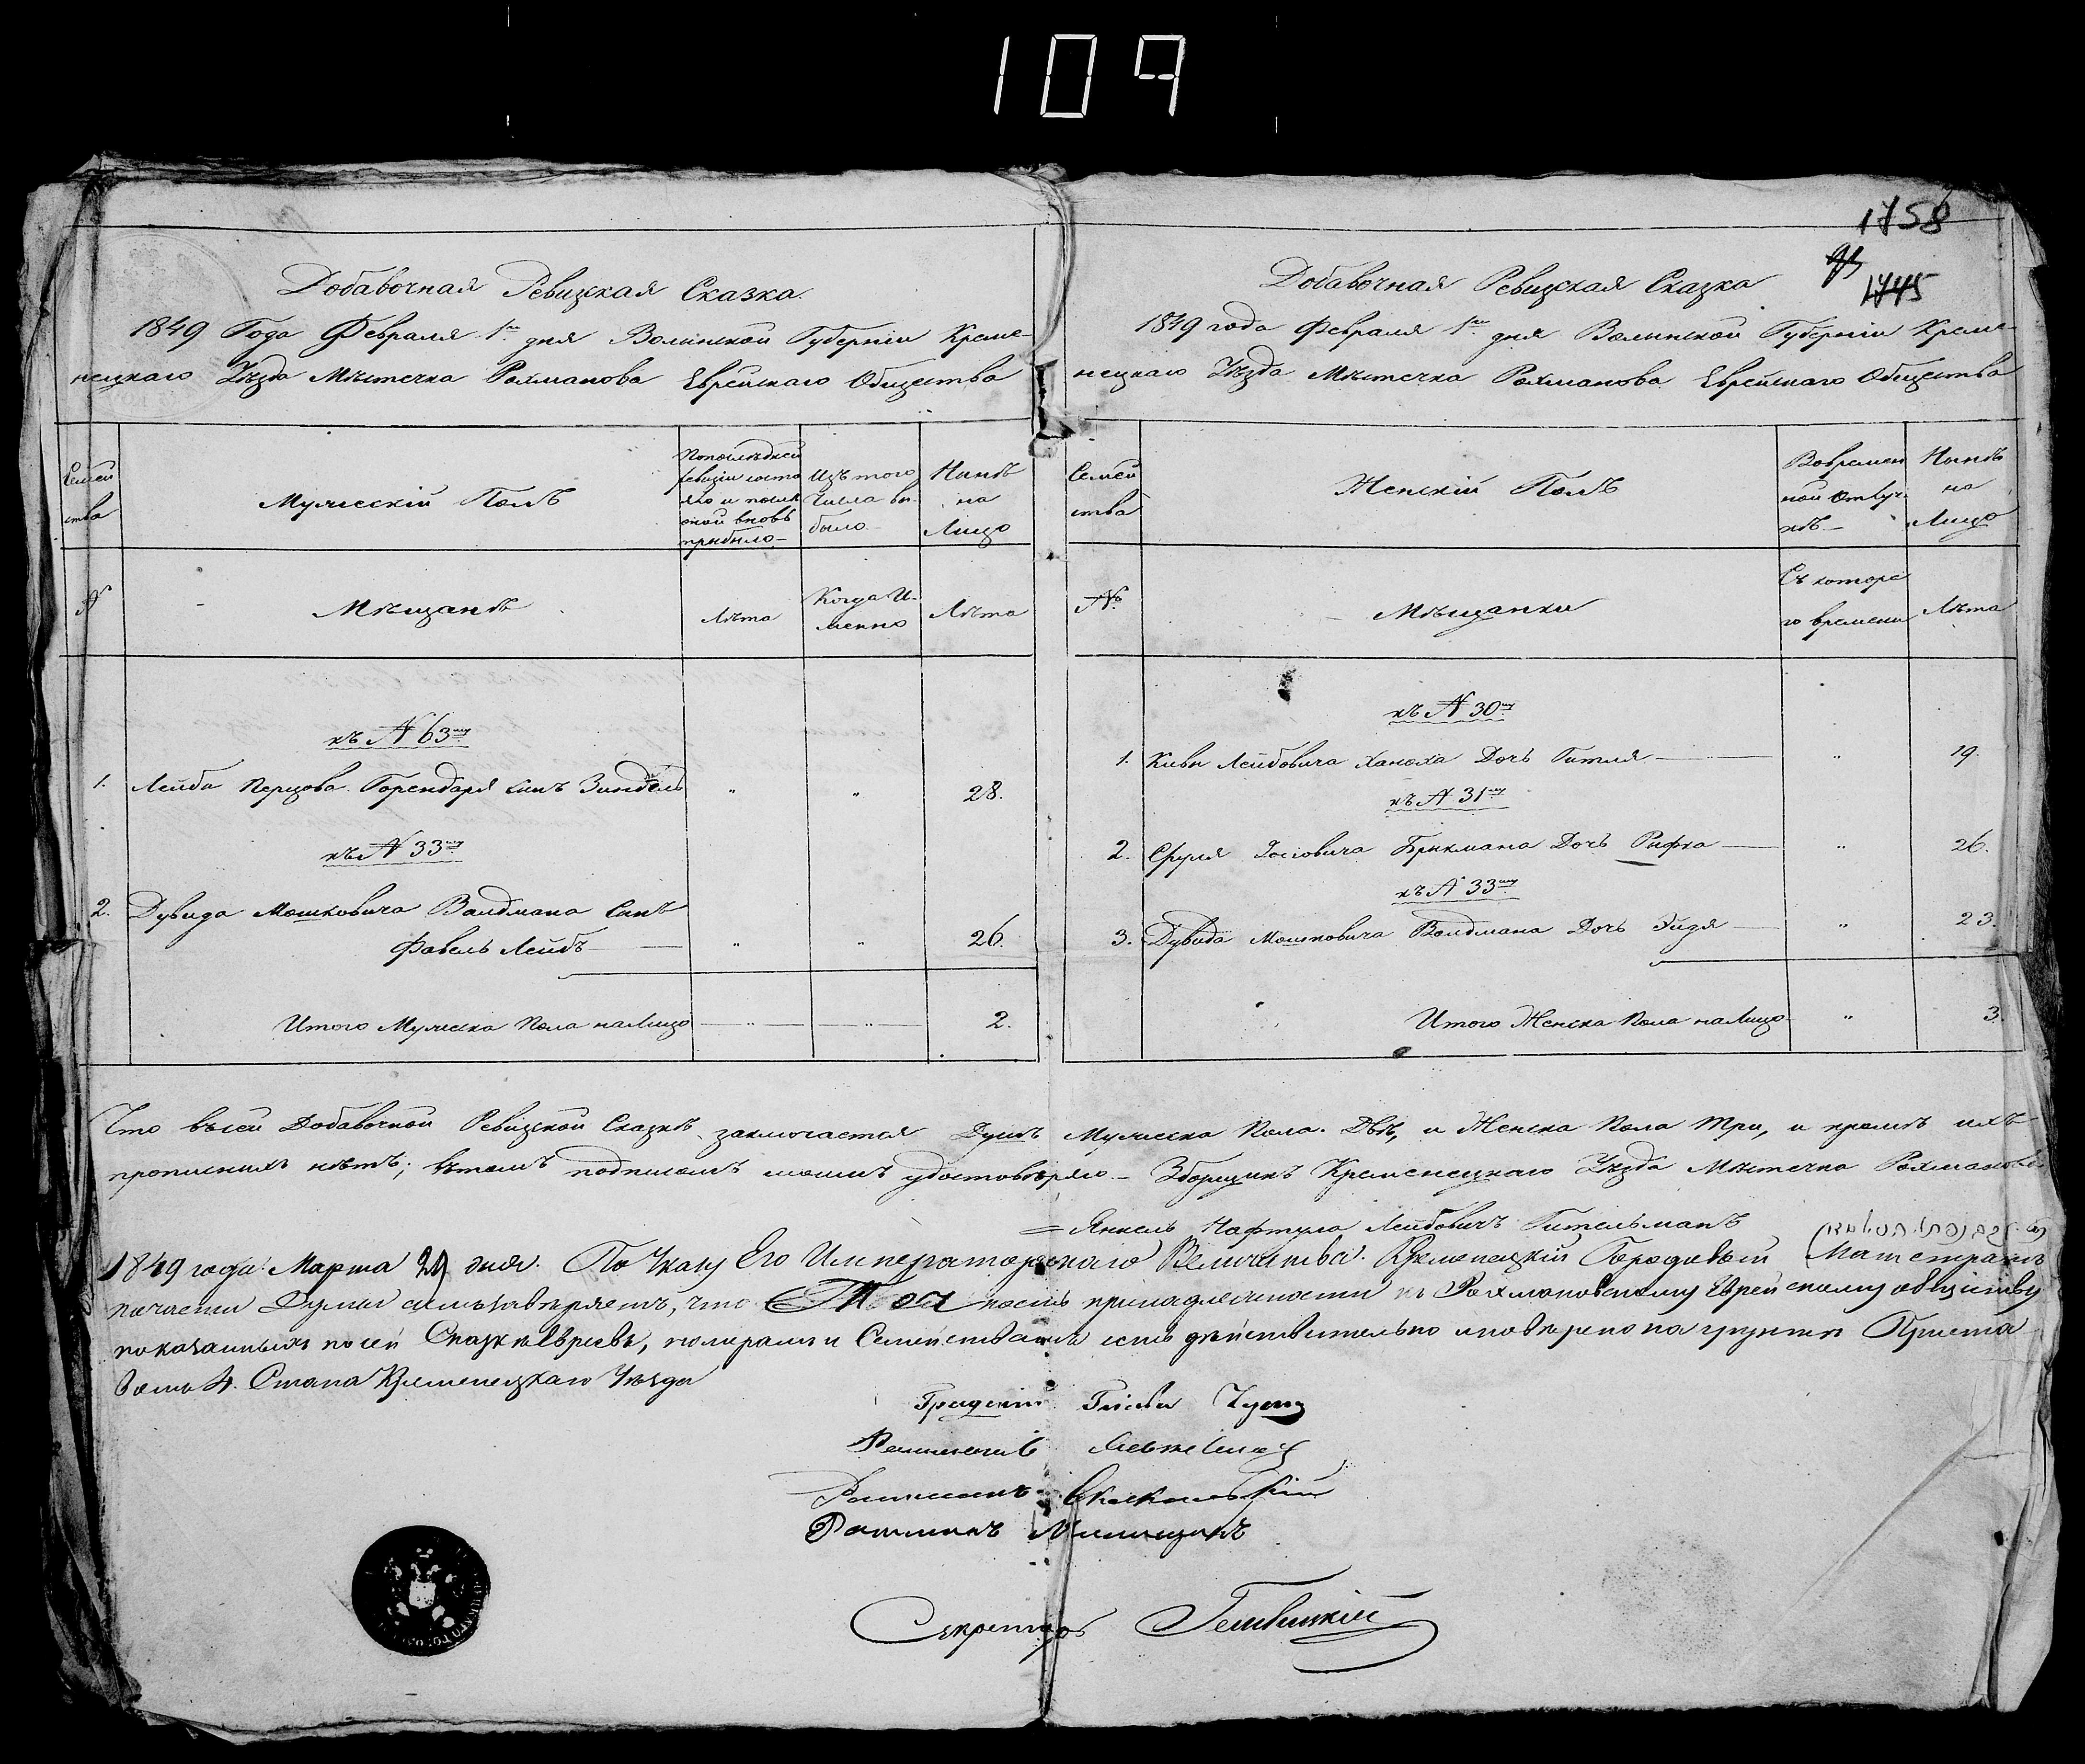 109
1758
1745
Добавочная Ревизкая Сказка.
1849 Года Февраля 1го дня Волынской Губерніи Креме-
нецкаго Уѣзда Мѣстечка Рахманова Еврейскаго Общества
Семей
ства
Мужескій Полъ
По послѣдней
ревизіи состо
яло и после
оной вновь
прибыло-
Изъ того
числа вы
было
Нынѣ
на
Лицо
№
Мѣщанѣ
Лѣта
Когда И-
менно
Лѣта
къ № 63му
1. Лейба Перцова Горендаря Сынъ Зиндель " " 28.
къ № 33му
2. Дувида Мошковича Валдмана Сынъ
Фавель Лейбъ " " 26.
Итого Мужеска Пола на Лицо " " 2.
Добавочная Ревизская Сказка
1849 года Февраля 1го дня Волынской Губерніи Креме-
нецкаго Уѣзда Мѣстечка Рахманова Еврейскаго Общества
Семей
ства
Женскій Полъ
Во времен
ной Отлуч
кѣ-
Нынѣ
на
Лицо
№
Мѣщанки
Съ которо
го времени
Лѣта
къ № 30му
1. Кивы Лейбовича Ханоха Дочь Гитля " 19.
къ № 31му
2. Сруля Іосіовича Брикмана Дочь Рифка " 26.
къ № 33му
3. Дувида Мошковича Валдмана Дочь Эйдя " 23.
Итого Женска Пола на Лицо " 3.
Что в сей Добавочной Ревизкой Сказкѣ заключается Душъ Мужеска Пола Двѣ, и Женска Пола три, и кромѣ ихъ
прописныхъ нѣтъ; в томъ подписомъ моимъ удостовѣряю - Зборщикъ Кременецкаго Уѣзда Мѣстечка Рахманова
= Янкель Нафтула Лейбовичъ Гительманъ
1849 года Марта 24 дня. По Указу Его Императорскаго Величества. Кременецкій Городовый Магистратъ
по части Думы симъ завѣряетъ, что принадлежности къ Рахмановскому Еврейскому обществу
показанныхъ по сей Сказкѣ Евреевъ, по лѣтамъ и Семействамъ есть дѣйствительно и повѣрено на грунтѣ Приста
вомъ 4. Стана Кременецкаго Уѣзда
Градскій Глава
Ратманъ
Ратманъ
Секретарь